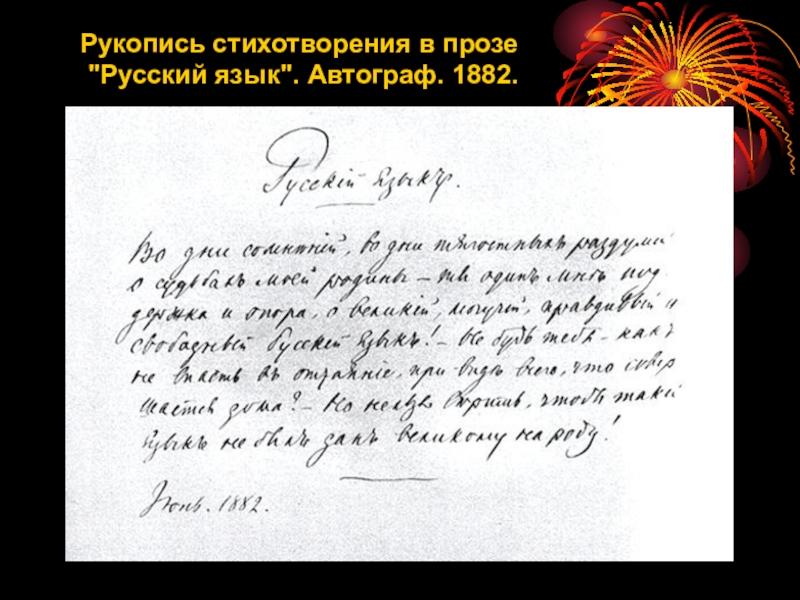 Рукопись стихотворения в прозе
"Русский язык". Автограф. 1882.
Русскій языкъ.
Во дни сомнѣній, во дни тягостныхъ раздумій
о судьбахъ моей родины – ты одинъ мнѣ под
держка и опора, о великій, могучій, правдивый и
свободный русскій языкъ! – Не будь тебя – какъ
не впасть въ отчаяніе, при видѣ всего, что совер
шается дома? – Но нельзя вѣрить, чтобы такой
языкъ не былъ данъ великому народу!
Іюнь. 1882.